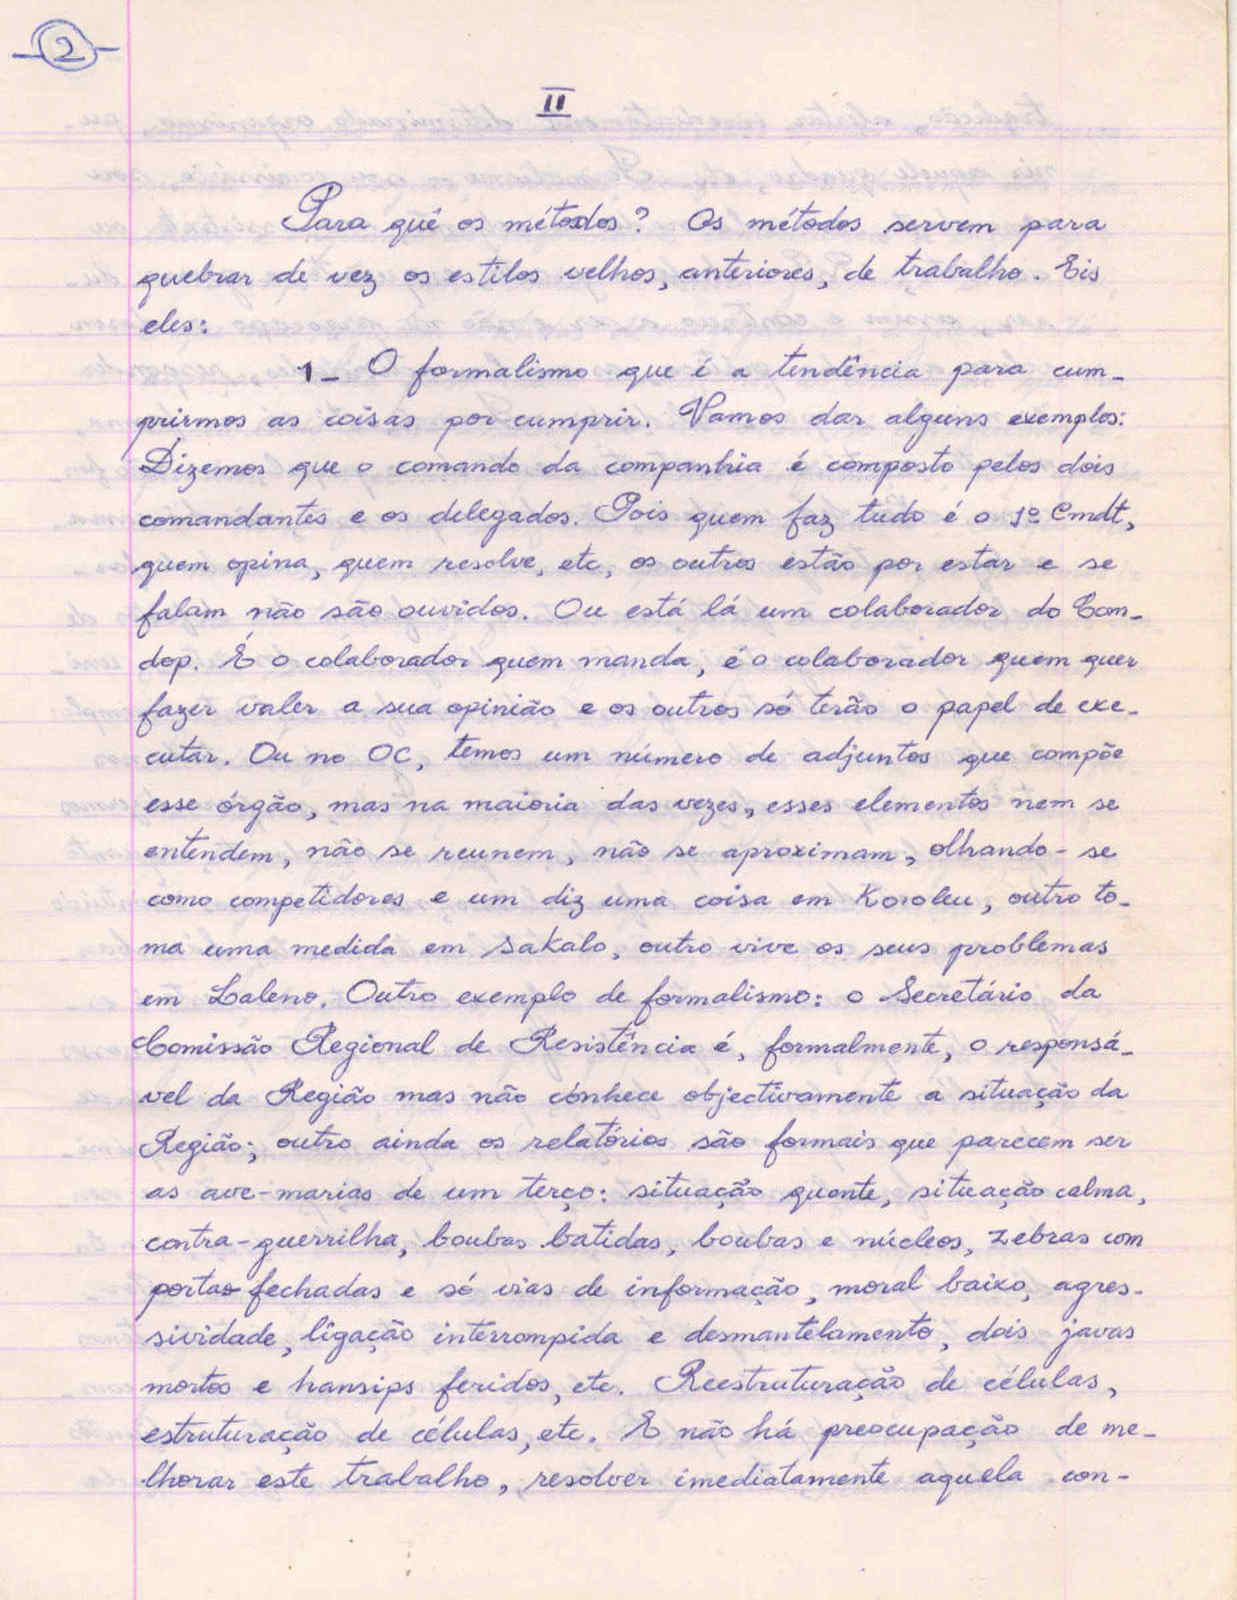 2
II
Para quê os métodos? Os métodos servem para
quebrar de vez os estilos velhos, anteriores, de trabalho. Eis
eles:
1- O formalismo que é a tendência para cum-
prirmos as coisas por cumprir. Vamos dar alguns exemplos:
Dizemos que o comando da companhia é composto pelos dois
comandantes e os delegados. Pois quem faz tudo é o 1º Cmdt,
quem opina, quem resolve, etc, os outros estão por estar e se
falam não são ouvidos. Ou está lá um colaborador do Con-
dop. É o colaborador quem manda, é o colaborador quem quer
fazer valer a sua opinião e os outros só terão o papel de exe-
cutar. Ou no OC, temos um número de adjuntos que compõe
esse órgão, mas na maioria das vezes, esses elementos nem se
entendem, não se reunem, não se aproximam, olhando-se
como competidores e um diz uma coisa em Koroleu, outro to-
ma uma medida em Sakalo, outro vive os seus problemas
em Laleno. Outro exemplo de formalismo: o Secretário da
Comissão Regional de Resistência é, formalmente, o responsá-
vel da Região mas não cónhece objectivamente a situação da
Região; outro ainda os relatórios são formais que parecem ser
as ave-marias de um terço: situação quente, situação calma,
contra-guerrilha, boubas batidas, boubas e núcleos, zebras com
portas fechadas e só vias de informação, moral baixo, agres-
sividade, ligação interrompida e desmantelamento, dois javas
mortos e hansips feridos, etc. Reestruturação de células,
estruturação de células, etc. E não há preocupação de me-
lhorar este trabalho, resolver imediatamente aquela con-